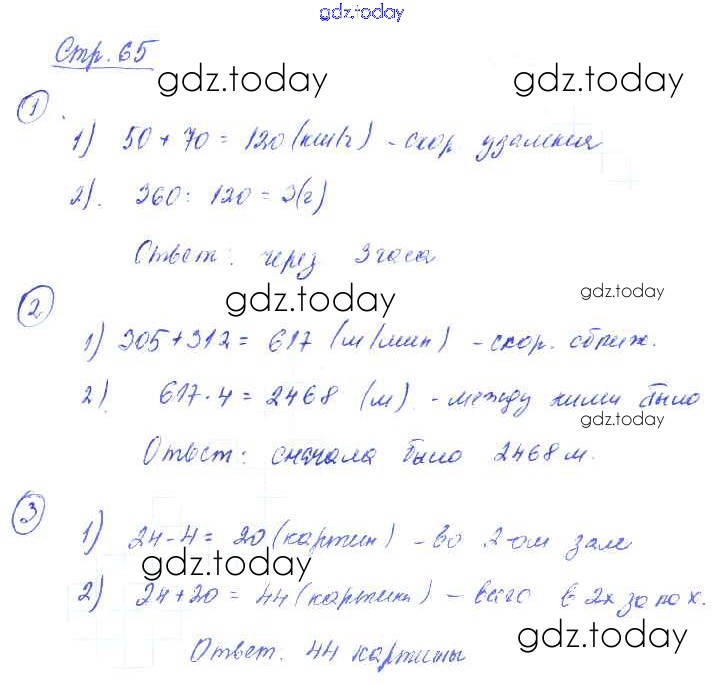 gdz.today
Стр. 65
gdz.today gdz.today
①
1) 50 + 70 = 120 (км/ч) - скор. удаления
gdz.today
2). 360 : 120 = 3(ч)
Ответ: через 3 часа
② gdz.today gdz.today
1) 305 + 312 = 617 (м/мин) - скор. сближ.
2) 617 · 4 = 2468 (м) - между ними было
gdz.today
Ответ: сначала было 2468 м.
③
1) 24 - 4 = 20 (картин) - во 2-ом зале
gdz.today
2) 24 + 20 = 44 (картины) - всего в 2х залах.
gdz.today
Ответ: 44 картины